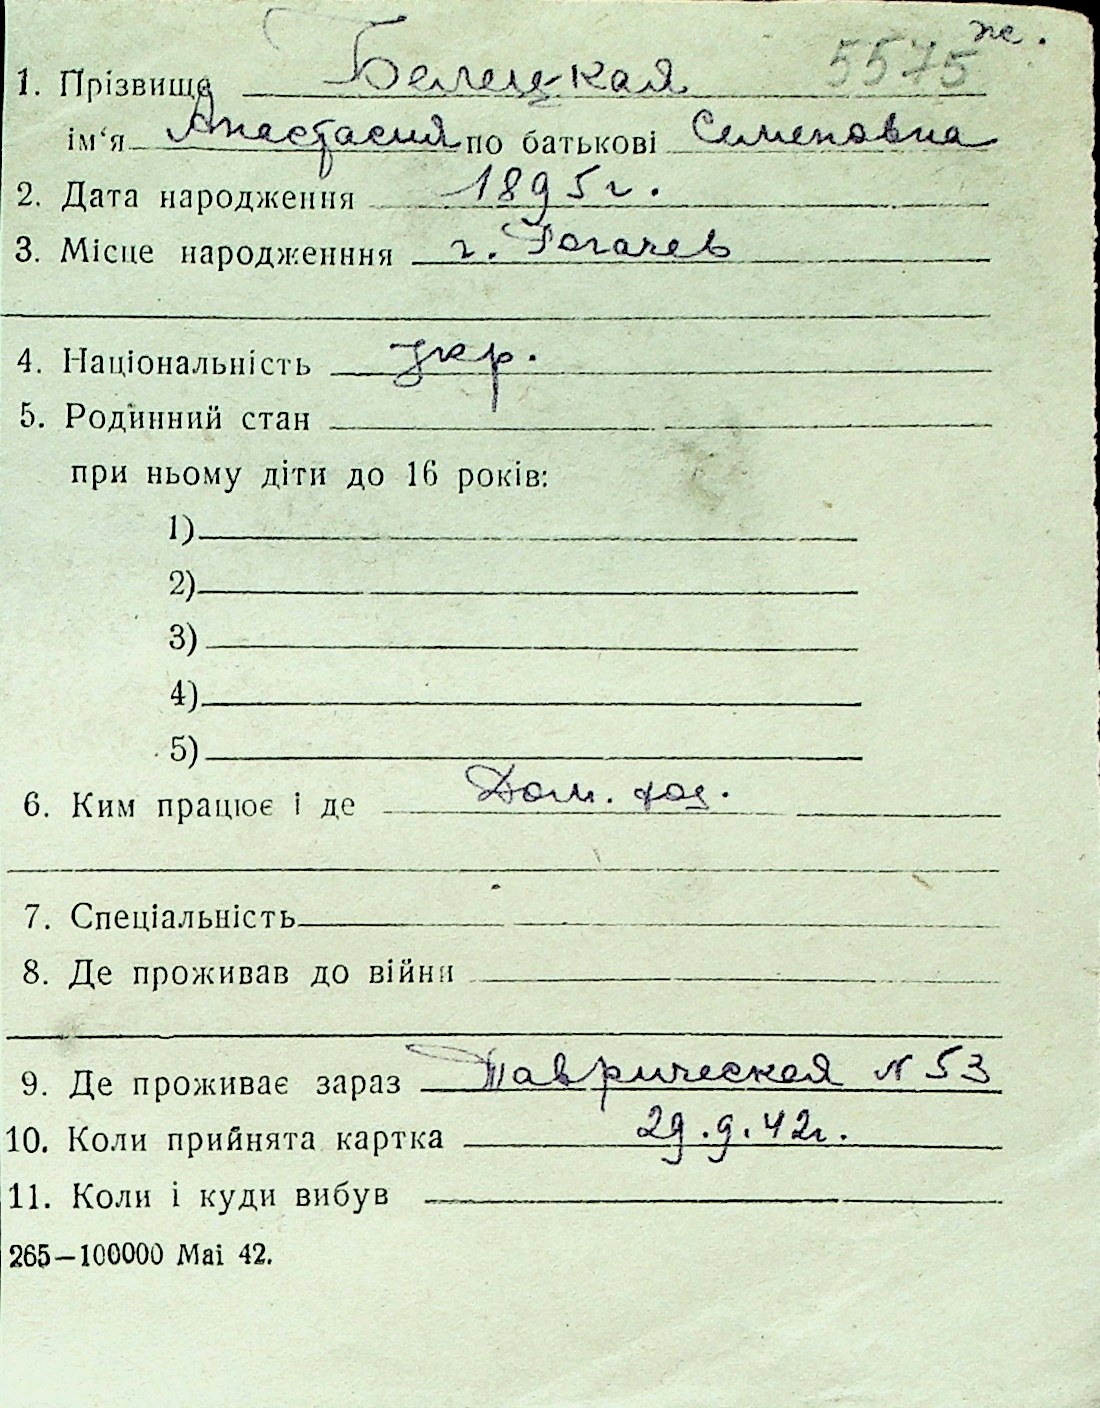 ж.
1. Прізвище Белецкая 5575
ім‘я Анастасия по батькові Семеновна
2. Дата народження 1895 г.
3. Місце народженння г. Рогачев
4. Національність укр.
5. Родинний стан
при ньому діти до 16 років:
1)
2)
3)
4)
5)
6. Ким працює і де Дом. хоз.
7. Спеціальність
8. Де проживав до війни
9. Де проживає зараз Таврическая N 53
10. Коли прийнята картка 29.9.42г.
11. Коли і куди вибув
265—100000 Mai 42.